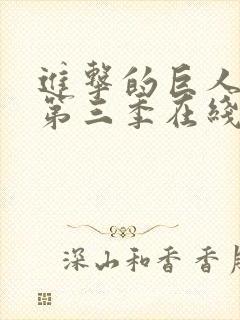 進擊的巨人
第三季在綫
深山和香香